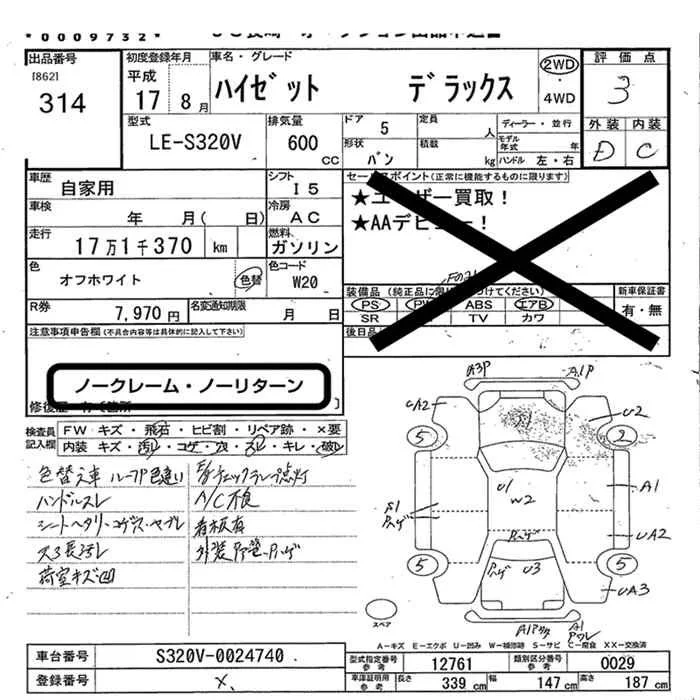 *0009732*
出品番号
[862]
314
初度登録年月
平成
17年 8月
車名・グレード
ハイゼット デラックス
2WD
・
4WD
評価点
3
外装 内装
D C
型式
LE-S320V
排気量
600
CC
ドア
5
形状
バン
定員
人
積載
kg
ディーラー・並行
モデル年式 年
ハンドル 左・右
車歴
自家用
シフト
I5
車検
年 月( 日)
冷房
AC
走行
17万1千370 km
燃料
ガソリン
色
オフホワイト
色替
色コード
W20
R券
7,970円
名変通知期限
月 日
セールスポイント(正常に機能するものに限ります)
★ユーザー買取!
★AAデビュー!
装備品
PS
ABS
エアB
SR
TV
カワ
新車保証書
有・無
後日品
注意事項申告欄(不具合内容等は具体的に記入して下さい)
ノークレーム・ノーリターン
検査員
記入欄
FW キズ・飛石・ヒビ割・リペア跡・×要
内装 キズ・汚レ・コゲ・穴・スレ・キレ・破レ
色替え車 ルーフP色違い
ハンドルスレ
シートヘタリ・コゲス・ヤブレ
スレ長汚レ
荷室キズ凹
E/gチェックランプ点灯
A/C不良
看板有
A3P
A1P
UA2
U2
5
2
U1
W2
A1
UA2
5
5
U3
UA3
スペア
A-キズ E-エクボ U-凹み W-補修跡 S-サビ C-腐食 XX-交換済
車台番号
S320V-0024740
登録番号
×
型式指定番号
参考
12761
類別区分番号
参考
0029
車庫証明用
参考
長さ 339 cm
幅 147 cm
高さ 187 cm